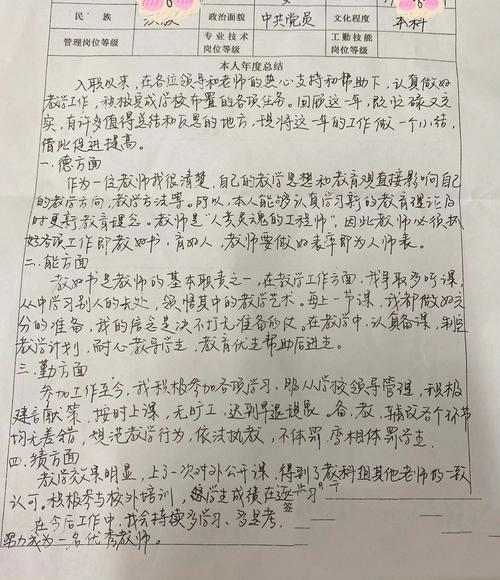 民 族 政治面貌 中共党员 文化程度 本科
管理岗位等级 专业技术岗位等级 工勤技能岗位等级
本人年度总结
入职以来，在各位领导和老师的热心支持和帮助下，认真做好
教学工作，积极完成学校布置的各项任务。回顾这一年，既忙碌又充
实，有许多值得总结和反思的地方，现将这一年的工作做一个小结，
借此促进提高。
一.德方面
作为一位教师我很清楚，自己的教学思想和教育观直接影响自己
的教学方向，教学方法等。所以，本人能够认真学习新的教育理论及
时更新教育理念。教师是“人类灵魂的工程师”，因此教师必须抓
好各项工作即教好书，育好人，教师要做好表率即为人师表。
二.能方面
教好书是教师的基本职责之一，在教学工作方面，我争取多听课，
从中学习别人的长处，领悟其中的教学艺术。每上一节课，我都做好充
分的准备，我的信念是决不打无准备的仗。在教学中，认真备课，制定
教学计划，耐心教导学生，教育优生帮助后进走。
三.勤方面
参加工作至今，我积极参加各项学习，服从学校领导管理，积极
建言献策，按时上课，无旷工，迟到早退现象。备、教、辅改各个环节
均无差错，规范教学行为，依法执教，不体罚、变相体罚学生。
四.绩方面
教学效果明显，上了一次对外公开课，得到了教科组其他老师的一致
认可。积极参与校外培训，学生成绩在逐
在今后工作中，我会持续多学习、多思考，
努力成为一名优秀教师。
签